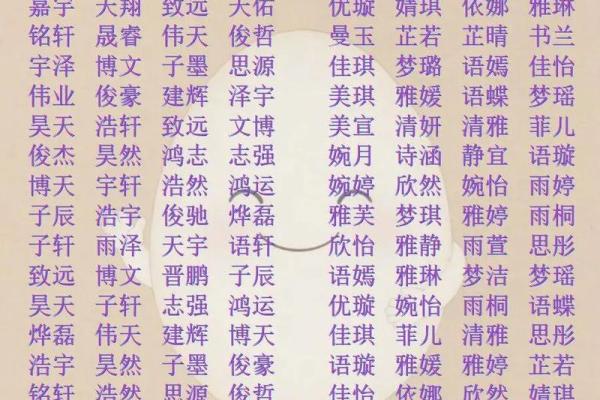 嘉宇 天翔 致远 天佑 优璇 婧琪 依娜 雅琳
铭轩 晟睿 伟天 俊哲 曼玉 芷若 芷晴 书兰
宇泽 博文 子墨 思源 佳琪 梦璐 语嫣 佳怡
伟业 俊豪 建辉 泽宇 美琪 雅媛 语蝶 梦瑶
昊天 浩轩 致远 文博 美宣 清妍 清雅 菲儿
俊杰 昊然 鸿志 志强 婉月 诗涵 静宜 语璇
博天 宇轩 浩然 鸿运 婉婷 欣然 婉怡 雨婷
子辰 浩宇 俊驰 烨磊 雅芙 梦琪 雅婷 雨桐
子轩 雨泽 天宇 语轩 欣怡 雅静 雨萱 思彤
致远 博文 晋鹏 子辰 语嫣 雅琳 梦洁 梦瑶
昊天 子轩 志强 鸿运 优璇 婉怡 雨桐 语蝶
烨磊 伟天 建辉 博天 佳琪 菲儿 清雅 思彤
浩宇 昊然 子墨 俊豪 语璇 雅媛 雅婷 芷若
铭轩 浩然 思源 俊哲 佳怡 依娜 欣然 婧琪